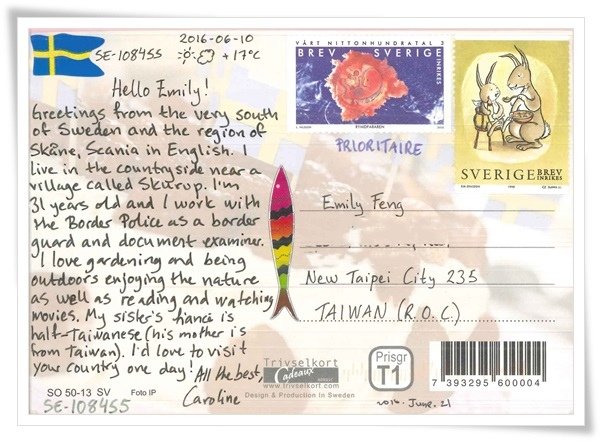 2016-06-10
SE-108455
+17°C
Hello Emily!
Greetings from the very south
of Sweden and the region of
Skåne, Scania in English. I
live in the countryside near a
village called Skurup. I'm
31 years old and I work with
the Border Police as a border
guard and document examiner.
I love gardening and being
outdoors enjoying the nature
as well as reading and watching
movies. My sister's fiancé is
half-Taiwanese (his mother is
from Taiwan). I'd love to visit
your country one day!
All the best,
Caroline
SO 50-13 SV Foto IP
SE-108455
VÅRT NITTONHUNDRATAL 3
BREV SVERIGE
INRIKES
RYMDFARAREN
PRIORITAIRE
SVERIGE BREV
INRIKES
1998
Emily Feng
New Taipei City 235
TAIWAN (R.O.C.)
Trivselkort
Cadeaux
www.trivselkort.com
Design & Production In Sweden
Prisgr
T1
7 393295 600004
2016. June. 21